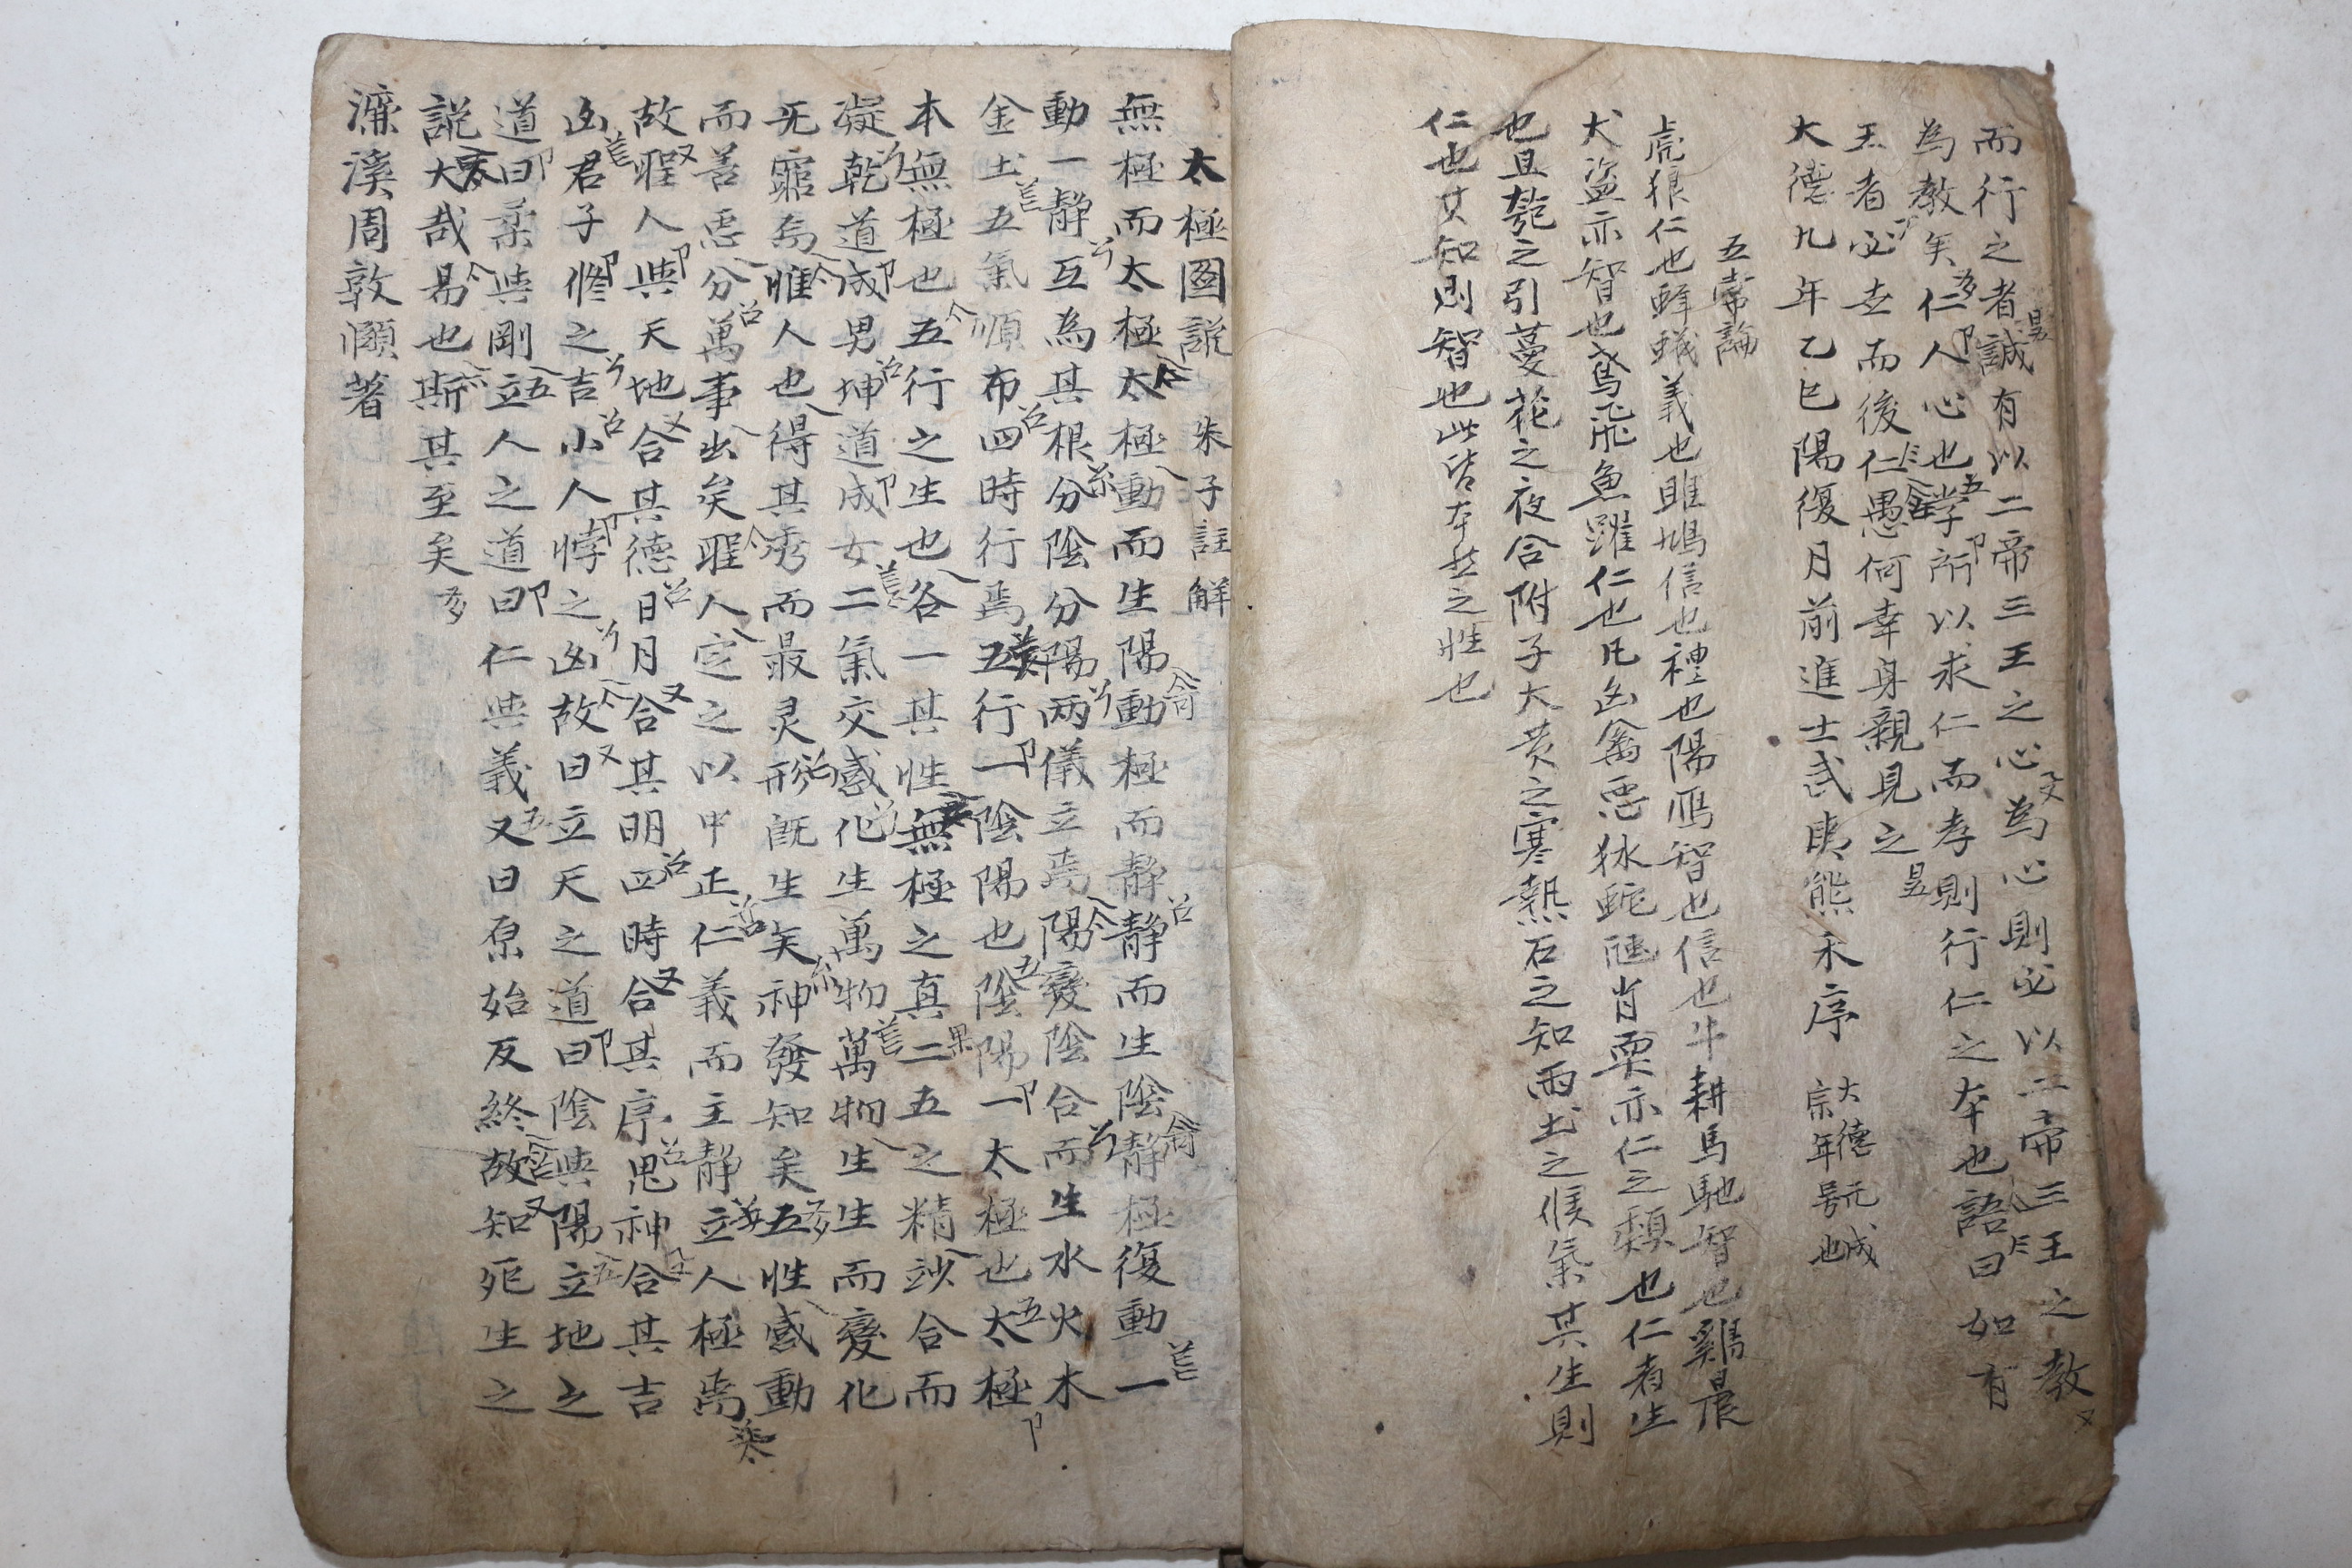 而行之者誠有以二帝三王之心爲心則必以二帝三王之教
爲教矣仁人心也學所以求仁而孝則行仁之本也語曰如有
王者必世而後仁愚何幸身親見之
大德九年乙巳陽復月前進士武夷熊禾序 大德元成宗年号也
五常論
虎狼仁也蜂蟻義也雎鳩信也禮也陽鴈智也信也牛耕馬馳智也鷄晨
犬盜亦智也鳶飛魚躍仁也凡凶禽惡狱蛇虺肖栗亦仁之類也仁者生
也且匏之引蔓花之夜合附子大黃之寒熱石之知雨土之候氣其生則
仁也其知則智也此皆本然之性也
太極圖說 朱子註解
無極而太極太極動而生陽動極而静静而生陰静極復動一
動一静互為其根分陰分陽兩儀立焉陽變陰合而生水火木
金土五氣順布四時行焉五行一陰陽也陰陽一太極也太極
本無極也五行之生也各一其性無極之真二五之精妙合而
凝乾道成男坤道成女二氣交感化生萬物萬物生生而變化
无窮焉惟人也得其秀而最灵形既生矣神發知矣五性感動
而善惡分萬事出矣聖人定之以中正仁義而主静立人極焉
故聖人與天地合其德日月合其明四時合其序鬼神合其吉
凶君子修之吉小人悖之凶故曰立天之道曰陰與陽立地之
道曰柔與剛立人之道曰仁與義又曰原始反終故知死生之
說大哉易也斯其至矣
濂溪周敦頤著